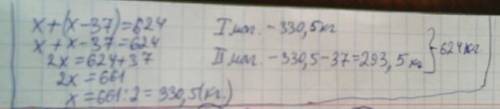 x+(x-37)=624
x+x-37=624
2x=624+37
2x=661
x=661:2=330,5(кг.)
I маг. -330,5кг
II маг. -330,5-37=293,5 кг } 624кг.